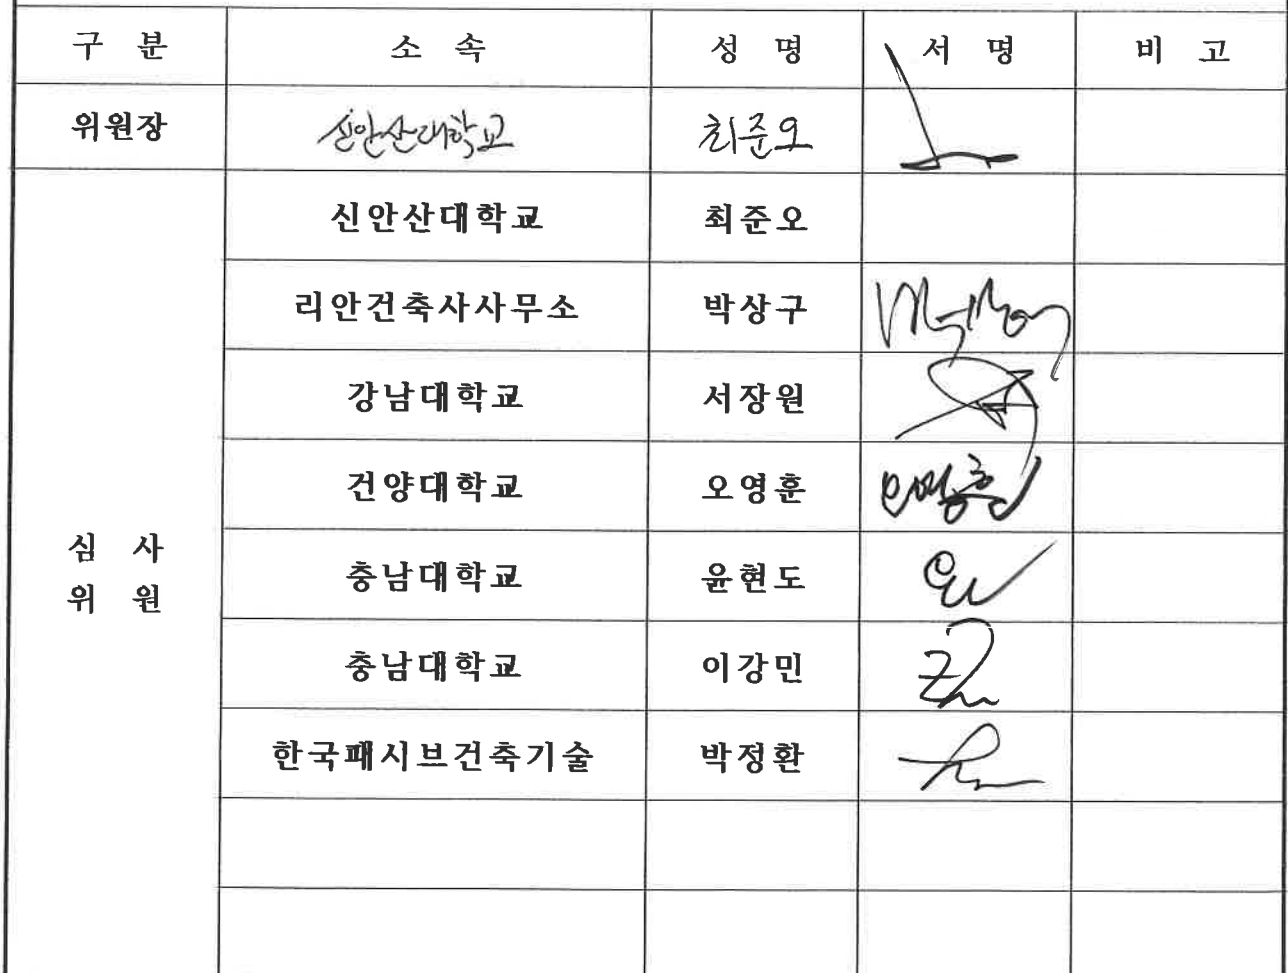 구 분 소 속 성 명 서 명 비 고
위원장 신안산대학교 최준오
신안산대학교 최준오
리안건축사사무소 박상구
강남대학교 서장원
건양대학교 오영훈 오영훈
심 사
위 원
충남대학교 윤현도
충남대학교 이강민
한국패시브건축기술 박정환